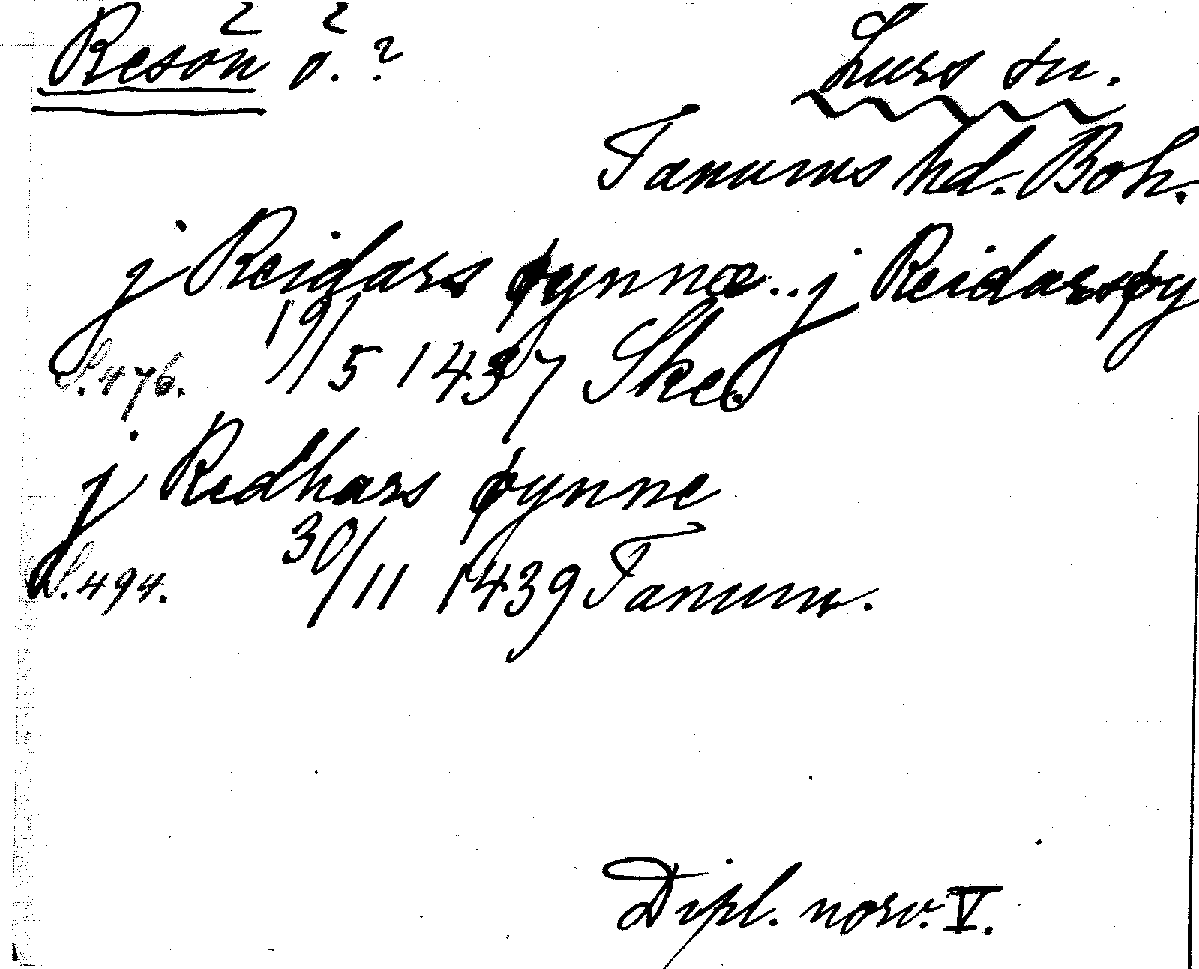 Resön ö.?
Lurs sn.
Tanums hd. Boh.
j Reidars øynnæ.. j Reidarsøy
S. 476. 19/5 1437 Skee
j Redhars øynne
S. 494. 30/11 1439 Tanum.
Dipl. norv. V.